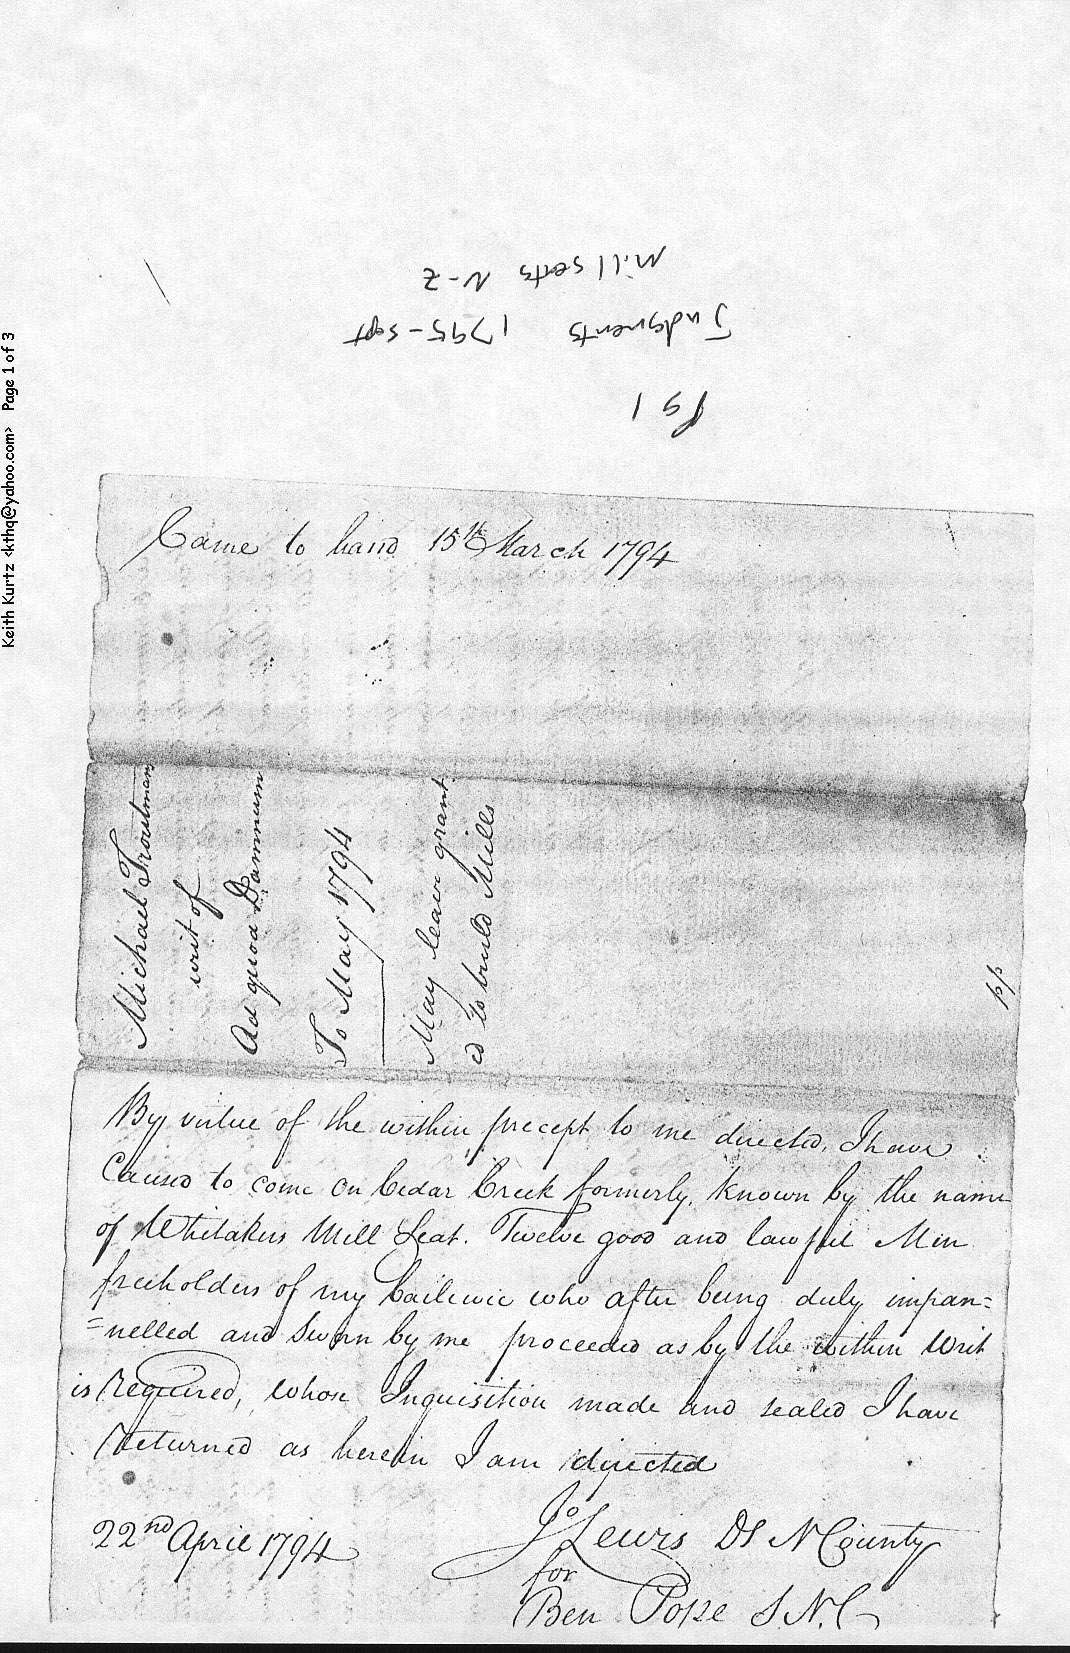 Keith Kurtz <kthq@yahoo.com> Page 1 of 3
Pg 1
Judgments 1795-Sept
Mill seats N-Z
Came to hand 15th March 1794
Michael Troutman
writ of
Ad quod Damnum
To May 1794
May leave grant
ed to build Mills
By virtue of the within precept to me directed, I have
Caused to come on Cedar Creek formerly known by the name
of Whitakers Mill Seat. Twelve good and lawful Men
freeholders of my bailiwic who after being duly impan=
=nelled and Sworn by me proceeded as by the within Writ
is required, whose Inquisition made and sealed I have
Returned as herein I am directed
22nd April 1794
Jo Lewis DS N County
for
Ben Pope S.N.C